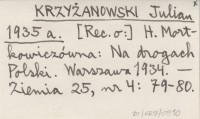 KRZYŻANOWSKI Julian
1935 a. [Rec. o:] H. Mort-
kowiczówna: Na drogach
Polski. Warszawa 1934. —
Ziemia 25, nr 4: 79-80.